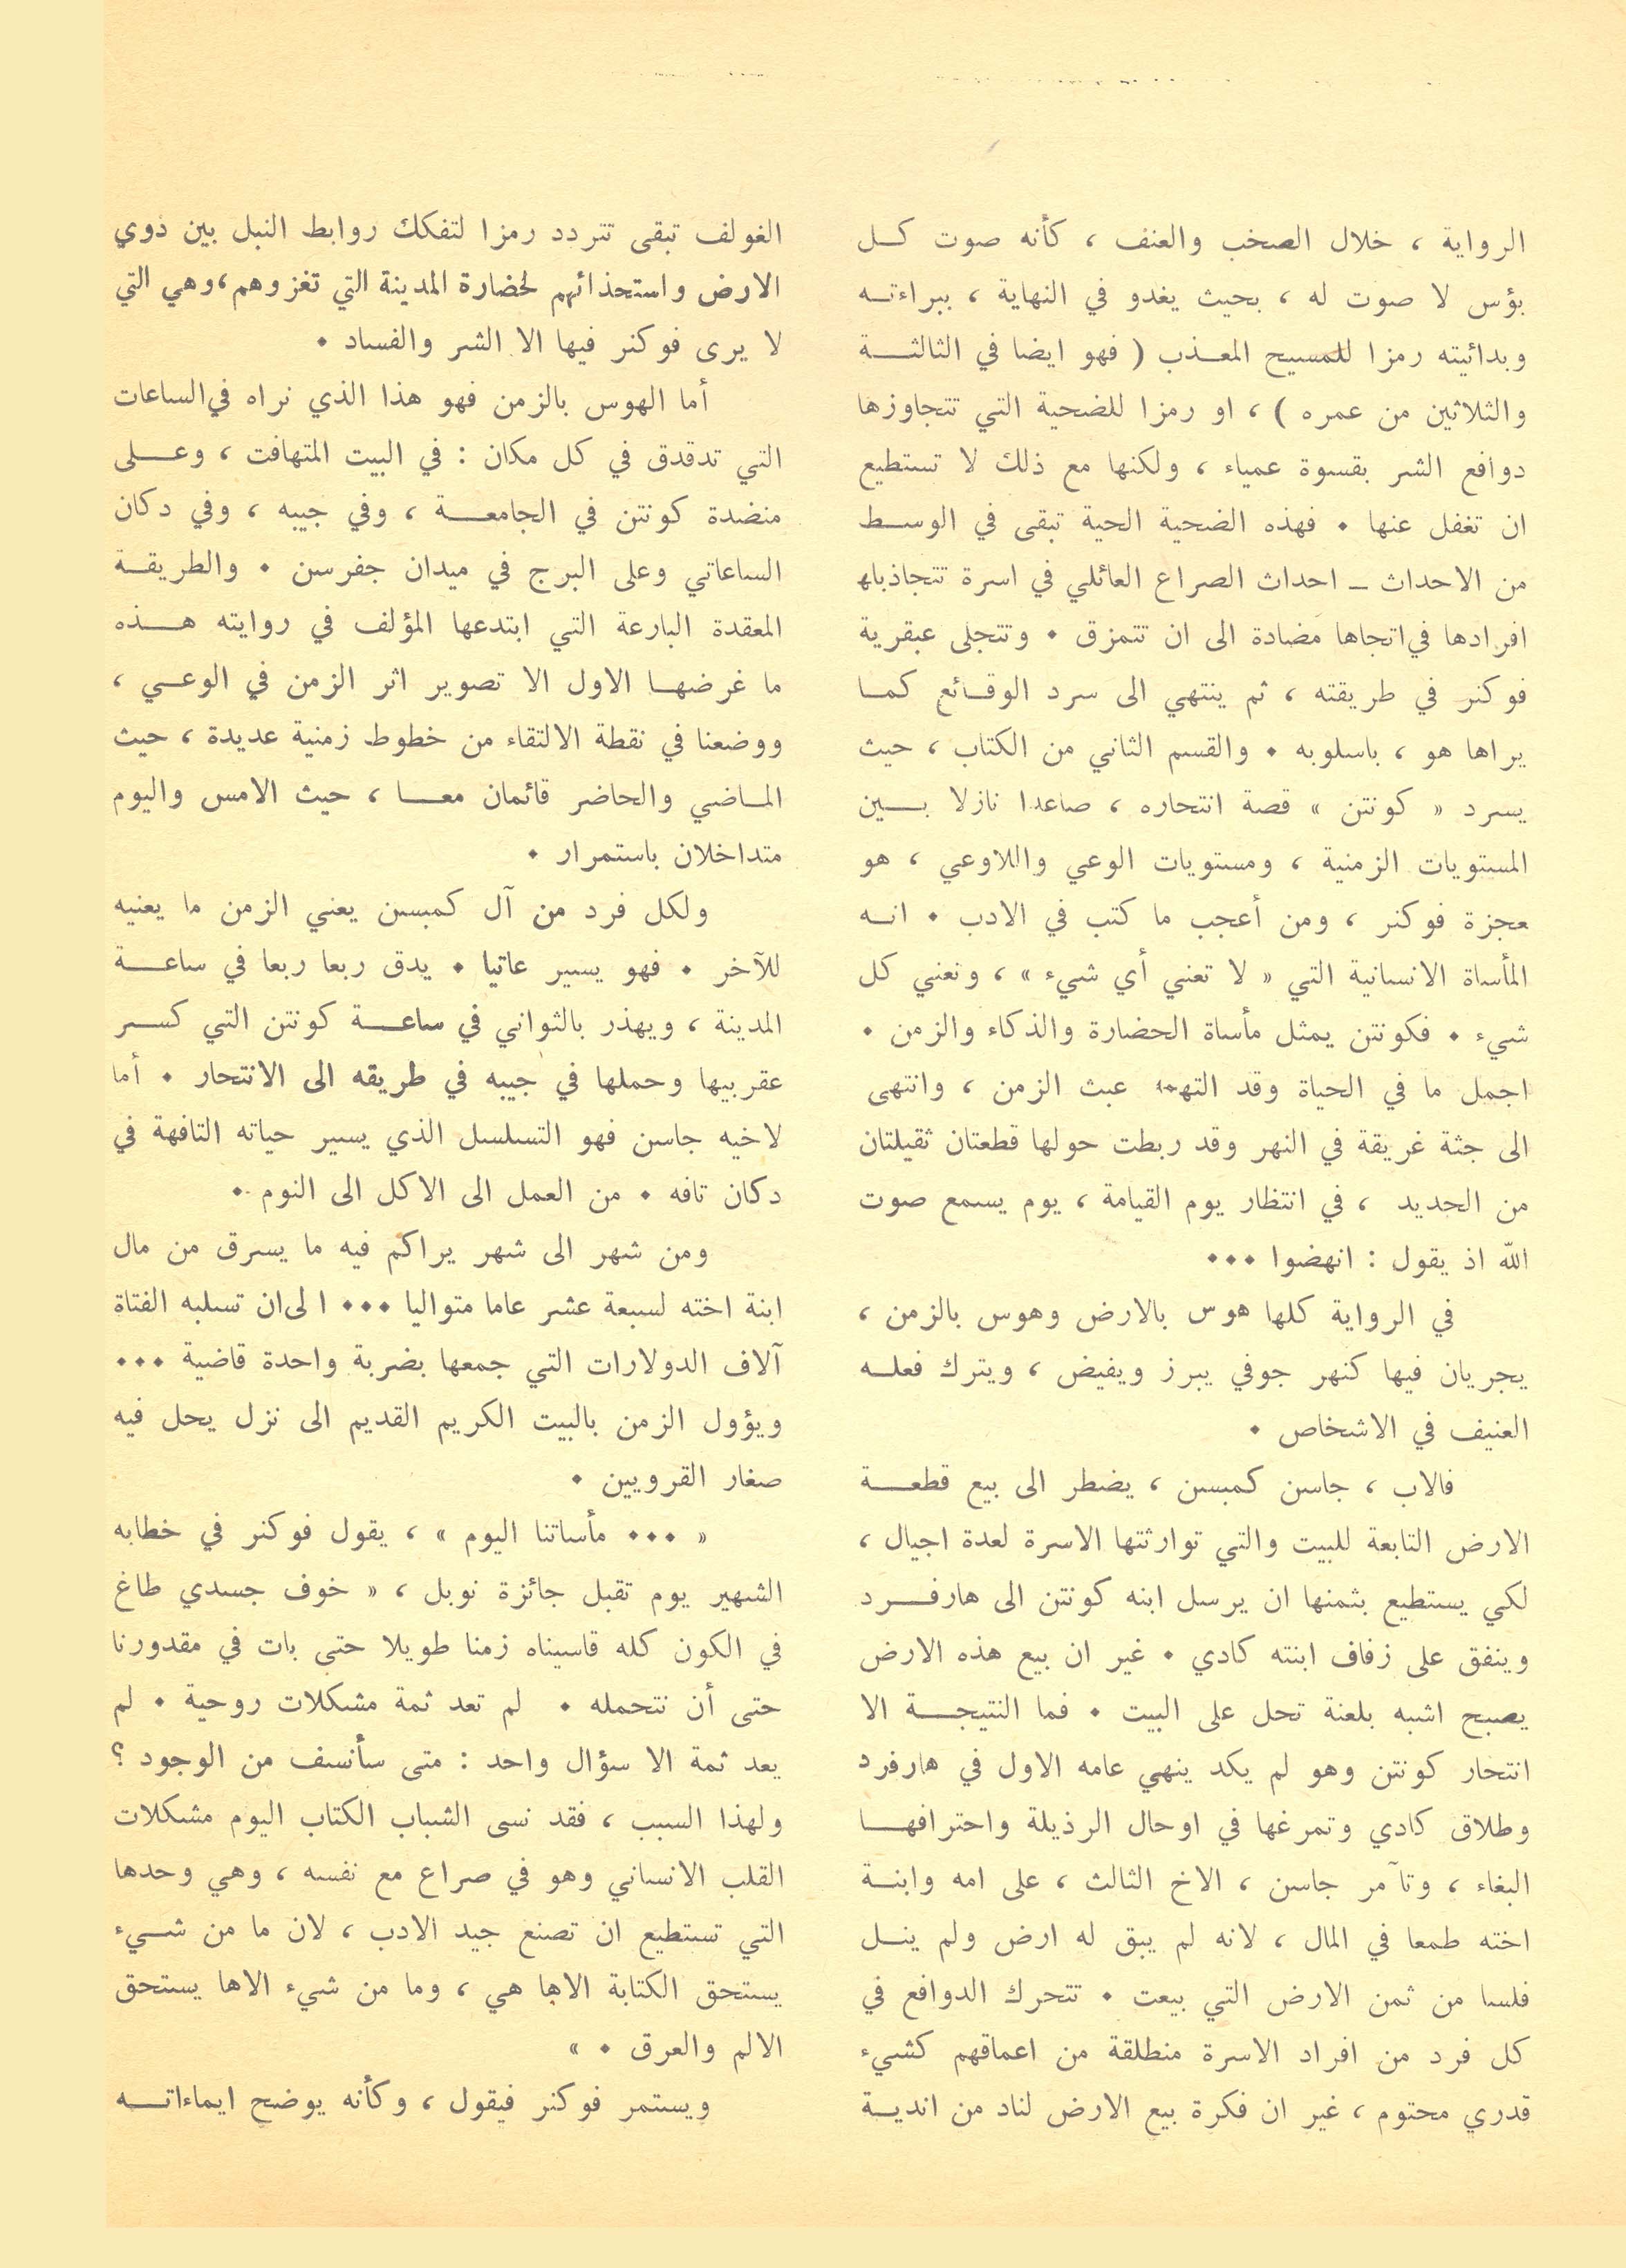 الرواية ، خلال الصخب والعنف ، كأنه صوت كل
بؤس لا صوت له ، بحيث يغدو في النهاية ، ببراءته
وبدائيته رمزا للمسيح المعذب ( فهو ايضا في الثالثة
والثلاثين من عمره ) ، او رمزا للضحية التي تتجاوزها
دوافع الشر بقسوة عمياء ، ولكنها مع ذلك لا تستطيع
ان تغفل عنها . فهذه الضحية الحية تبقى في الوسط
من الاحداث – احداث الصراع العائلي في اسرة تتجاذبها
افرادها في اتجاها مضادة الى ان تتمزق . وتتجلى عبقرية
فوكنر في طريقته ، ثم ينتهي الى سرد الوقائع كما
يراها هو ، باسلوبه . والقسم الثاني من الكتاب ، حيث
يسرد « كونتن » قصة انتحاره ، صاعدا نازلا بين
المستويات الزمنية ، ومستويات الوعي واللاوعي ، هو
معجزة فوكنر ، ومن أعجب ما كتب في الادب . انه
المأساة الانسانية التي « لا تعني أي شيء » ، وتعني كل
شيء . فكونتن يمثل مأساة الحضارة والذكاء والزمن .
اجمل ما في الحياة وقد عبث الزمن ، وانتهى
الى جثة غريقة في النهر وقد ربطت حولها قطعتان ثقيلتان
من الحديد ، في انتظار يوم القيامة ، يوم يسمع صوت
الله اذ يقول : انهضوا ...
في الرواية كلها هوس بالارض وهوس بالزمن ،
يجريان فيها كنهر جوفي يبرز ويفيض ، ويترك فعله
العنيف في الاشخاص .
فالاب ، جاسن كمبسن ، يضطر الى بيع قطعة
الارض التابعة للبيت والتي توارثتها الاسرة لعدة اجيال ،
لكي يستطيع بثمنها ان يرسل ابنه كونتن الى هارفرد
وينفق على زفاف ابنته كادي . غير ان بيع هذه الارض
يصبح اشبه بلعنة تحل على البيت . فما النتيجة الا
انتحار كونتن وهو لم يكد ينهي عامه الاول في هارفرد
وطلاق كادي وتمرغها في اوحال الرذيلة واحترافها
البغاء ، وتآمر جاسن ، الاخ الثالث ، على امه وابنة
اخته طمعا في المال ، لانه لم يبق له ارض ولم ينل
فلسا من ثمن الارض التي بيعت . تتحرك الدوافع في
كل فرد من افراد الاسرة منطلقة من اعماقهم كشيء
قدري محتوم ، غير ان فكرة بيع الارض لناد من اندية
الغولف تبقى تتردد رمزا لتفكك روابط النبل بين ذوي
الارض واستحذائهم لحضارة المدينة التي تغزوهم ، وهي التي
لا يرى فوكنر فيها الا الشر والفساد .
أما الهوس بالزمن فهو هذا الذي نراه في الساعات
التي تدقدق في كل مكان : في البيت المتهافت ، وعلى
منضدة كونتن في الجامعة ، وفي جيبه ، وفي دكان
الساعاتي وعلى البرج في ميدان جفرسن . والطريقة
المعقدة البارعة التي ابتدعها المؤلف في روايته هذه
ما غرضها الاول الا تصوير اثر الزمن في الوعي ،
ووضعنا في نقطة الالتقاء من خطوط زمنية عديدة ، حيث
الماضي والحاضر قائمان معا ، حيث الامس واليوم
متداخلان باستمرار .
ولكل فرد من آل كمبسن يعني الزمن ما يعنيه
للآخر . فهو يسير عاتيا . يدق ربعا ربعا في ساعة
المدينة ، ويهذر بالثواني في ساعة كونتن التي كسر
عقربيها وحملها في جيبه في طريقه الى الانتحار . أما
لاخيه جاسن فهو التسلسل الذي يسير حياته التافهة في
دكان تافه . من العمل الى الاكل الى النوم .
ومن شهر الى شهر يراكم فيه ما يسرق من مال
ابنة اخته لسبعة عشر عاما متواليا ... الى ان تسلبه الفتاة
آلاف الدولارات التي جمعها بضربة واحدة قاضية ...
ويؤول الزمن بالبيت الكريم القديم الى نزل يحل فيه
صغار القرويين .
« ... مأساتنا اليوم » ، يقول فوكنر في خطابه
الشهير يوم تقبل جائزة نوبل ، « خوف جسدي طاغ
في الكون كله قاسيناه زمنا طويلا حتى بات في مقدورنا
حتى أن نتحمله . لم تعد ثمة مشكلات روحية . لم
يعد ثمة الا سؤال واحد : متى سأنسف من الوجود ؟
ولهذا السبب ، فقد نسى الشباب الكتاب اليوم مشكلات
القلب الانساني وهو في صراع مع نفسه ، وهي وحدها
التي تستطيع ان تصنع جيد الادب ، لان ما من شيء
يستحق الكتابة الاها هي ، وما من شيء الاها يستحق
الالم والعرق . »
ويستمر فوكنر فيقول ، وكأنه يوضح ايماءاته